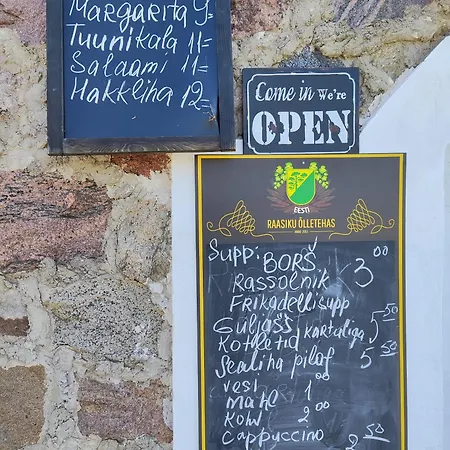 Margarita 9=
Tuunikala 11=
Salaami 11=
Hakkliha 12=
Come in We're
OPEN
EESTI
RAASIKU ÕLLETEHAS
Supp: BORŠ 3 00
Rassolnik
Frikadellisupp
Guljašš 5 50
Kotletid kartaliga
Sealiha pilaf 5 50
vesi 1 00
Mahl
Kohv 2 00
Cappuccino 2 50